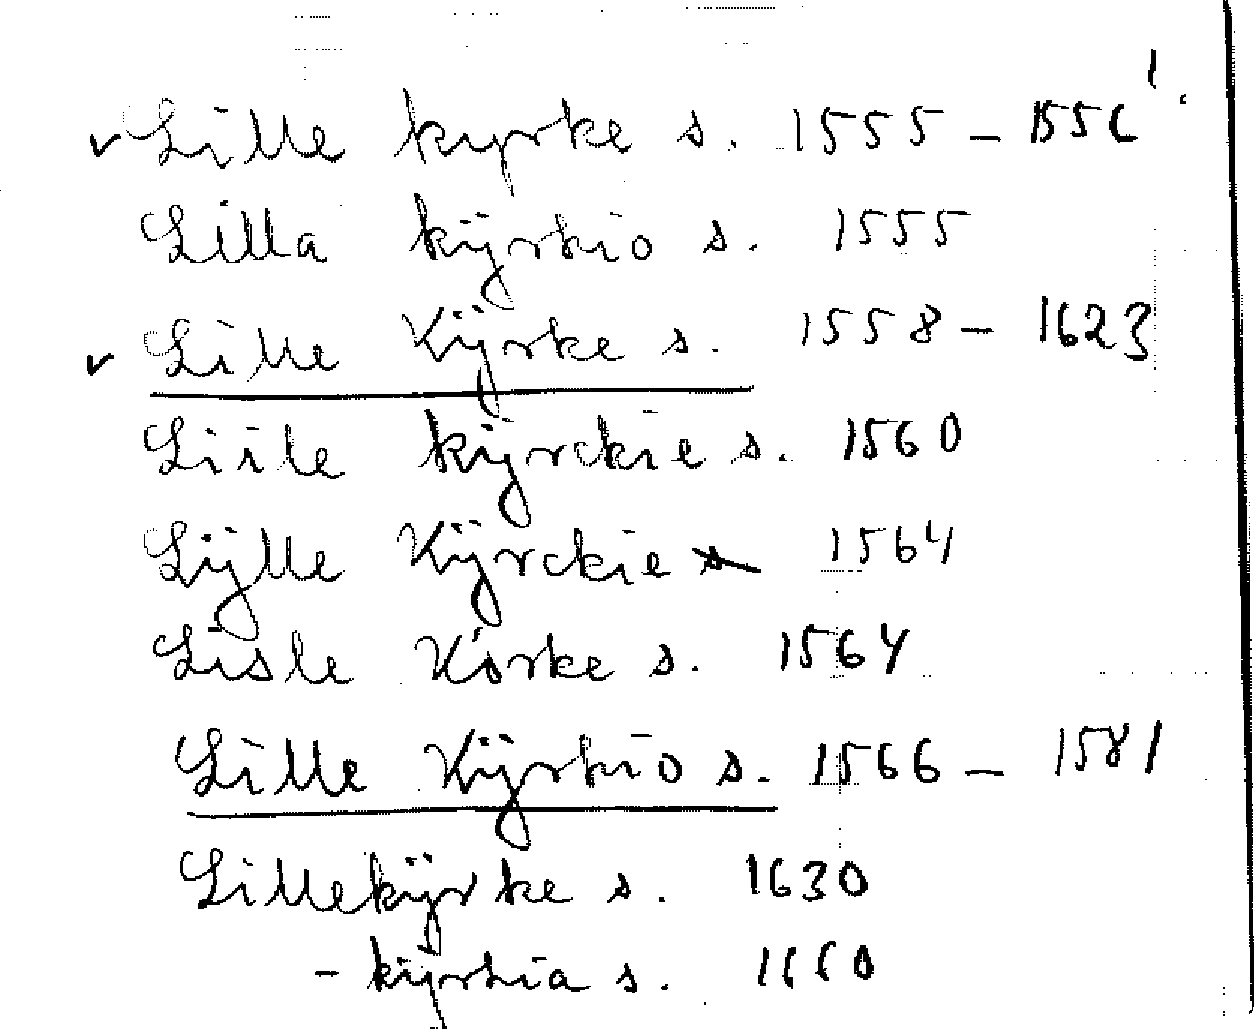 1.
✓ Lille kyrke s. 1555 – 1556
Lilla kÿrkio s. 1555
✓ Lille Kÿrke s. 1558 – 1623
Liile kÿrckie s. 1560
Lÿlle Kÿrckie s 1564
Lisle Körke s. 1564
Lille Kÿrkio s. 1566 – 1581
Lillekÿrke s. 1630
– kÿrkia s. 1660